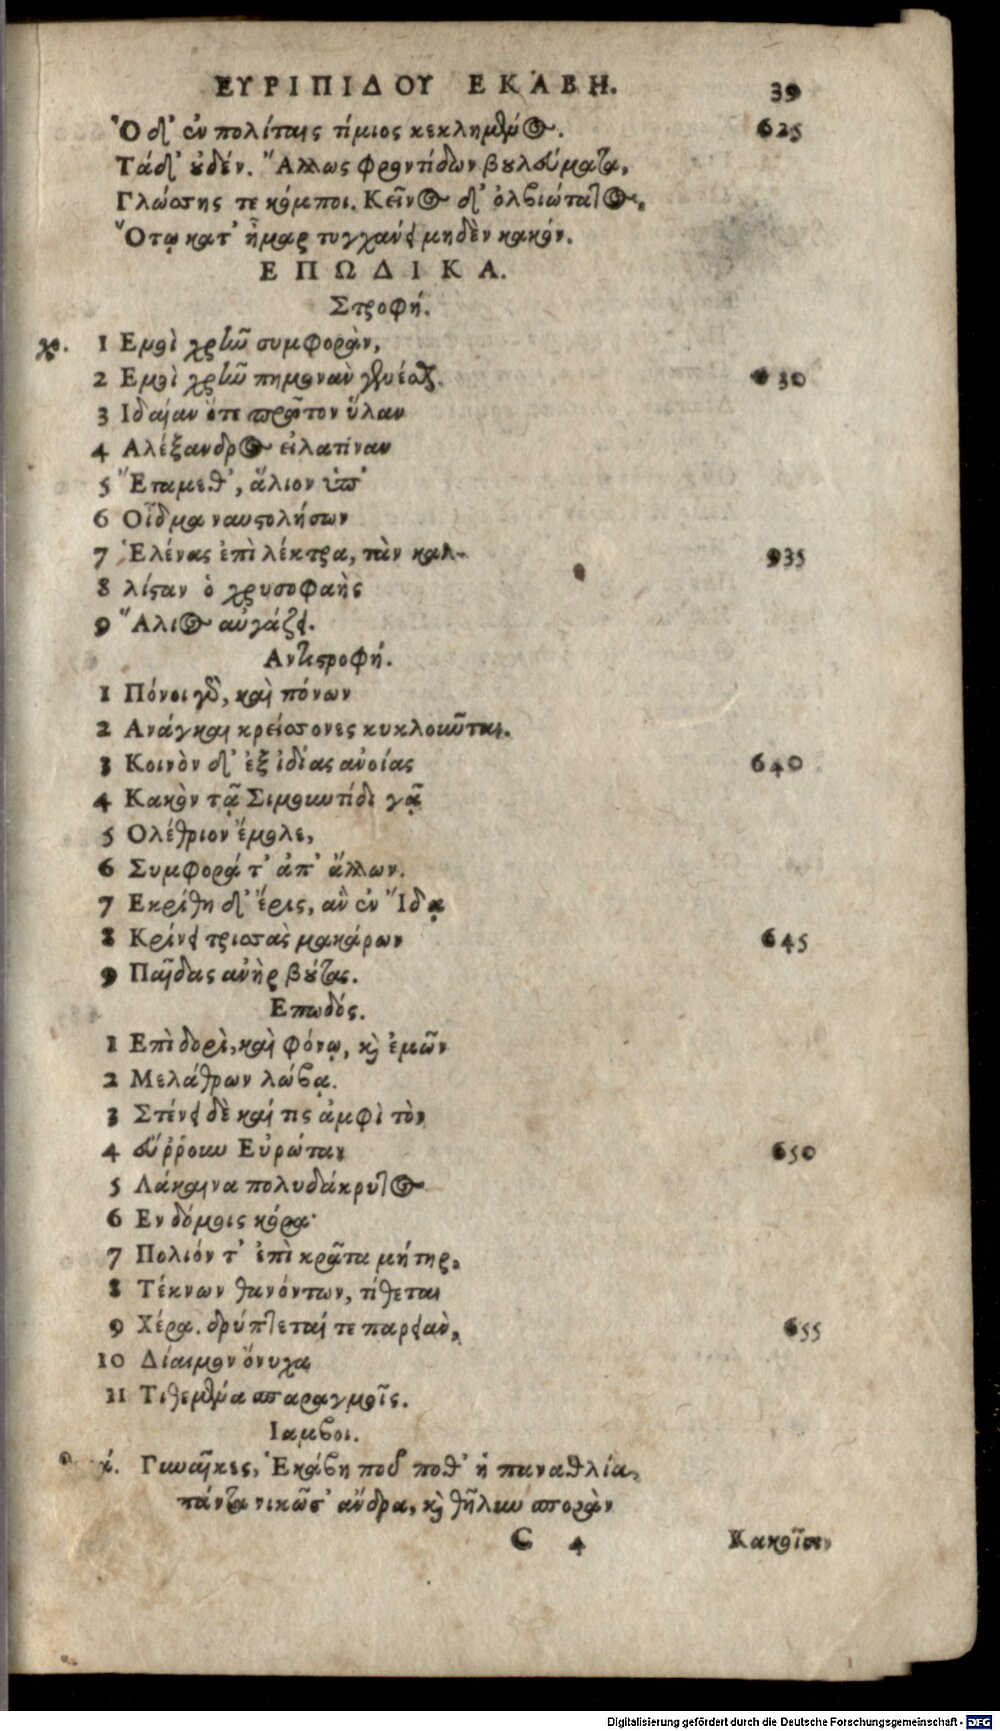 ΕΥΡΙΠΙΔΟΥ ΕΚΑΒΗ. 39
Ὁ δ' ἐν πολίταις τίμιος κεκλημένος. 625
Τάδ' οὐδέν. Ἄλλως φροντίδων βουλεύματα,
Γλώσσης τε κόμποι. Κεῖνος δ' ὀλβιώτατος,
Ὅτῳ κατ' ἦμαρ τυγχάνει μηδὲν κακόν.
ΕΠΩΔΙΚΑ.
Στροφή.
χο. 1 Εμοὶ χρῆν συμφορὰν,
2 Εμοὶ χρῆν πημονὰν γενέσθαι. 630
3 Ιδαίαν ὅτε πρῶτον ὕλαν
4 Αλέξανδρος εἰλατίναν
5 Ἔταμεθ', ἅλιον ἐπ'
6 Οἶδμα ναυστολήσων
7 Ἑλένας ἐπὶ λέκτρα, τὰν καλ- 935
8 λίσταν ὁ χρυσοφαὴς
9 Ἅλιος αὐγάζει.
Αντιστροφή.
1 Πόνοι γὰρ, καὶ πόνων
2 Ανάγκαι κρείσσονες κυκλοῦνται.
3 Κοινὸν δ' ἐξ ἰδίας ἀνοίας 640
4 Κακὸν τᾷ Σιμουντίδι γᾷ
5 Ολέθριον ἔμολε,
6 Συμφορά τ' ἀπ' ἄλλων.
7 Εκρίθη δ' ἔρις, ἃν ἐν Ἴδᾳ
8 Κρίνει τρισσὰς μακάρων 645
9 Παῖδας ἀνὴρ βούτας.
Επωδός.
1 Επὶ δορὶ, καὶ φόνῳ, καὶ ἐμῶν
2 Μελάθρων λώβᾳ.
3 Στένει δὲ καί τις ἀμφὶ τὸν
4 εὔῤῥοον Εὐρώταν 650
5 Λάκαινα πολυδάκρυτος
6 Εν δόμοις κόρα·
7 Πολιόν τ' ἐπὶ κρᾶτα μήτηρ,
8 Τέκνων θανόντων, τίθεται
9 Χέρα. δρύπτεταί τε παρειὰν, 655
10 Δίαιμον ὄνυχα
11 Τιθεμένα σπαραγμοῖς.
Ιαμβοι.
Γυναῖκες, Ἑκάβη ποῦ ποθ' ἡ παναθλία,
πάντα νικῶσ' ἄνδρα, καὶ θῆλυν σπορὰν
C 4 Κακοῖσιν
Digitalisierung gefördert durch die Deutsche Forschungsgemeinschaft - DFG